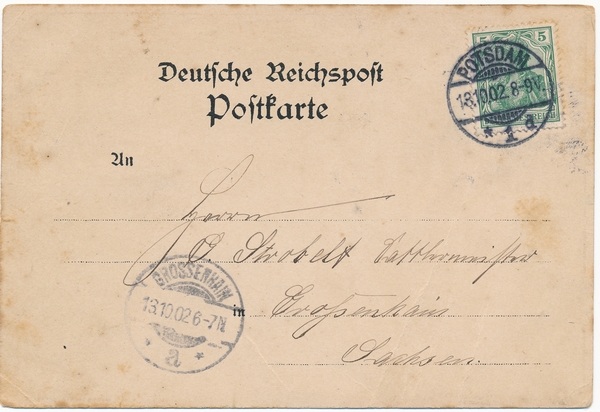 Deutsche Reichspost
Postkarte
5 5
POTSDAM
13.10.02 8-9V.
* 1 a
An
Herrn
O. Strobelt Sattlermeister
GROSSENHAIN
13.10.02 6-7N
* a *
in Großenhain
Sachsen.